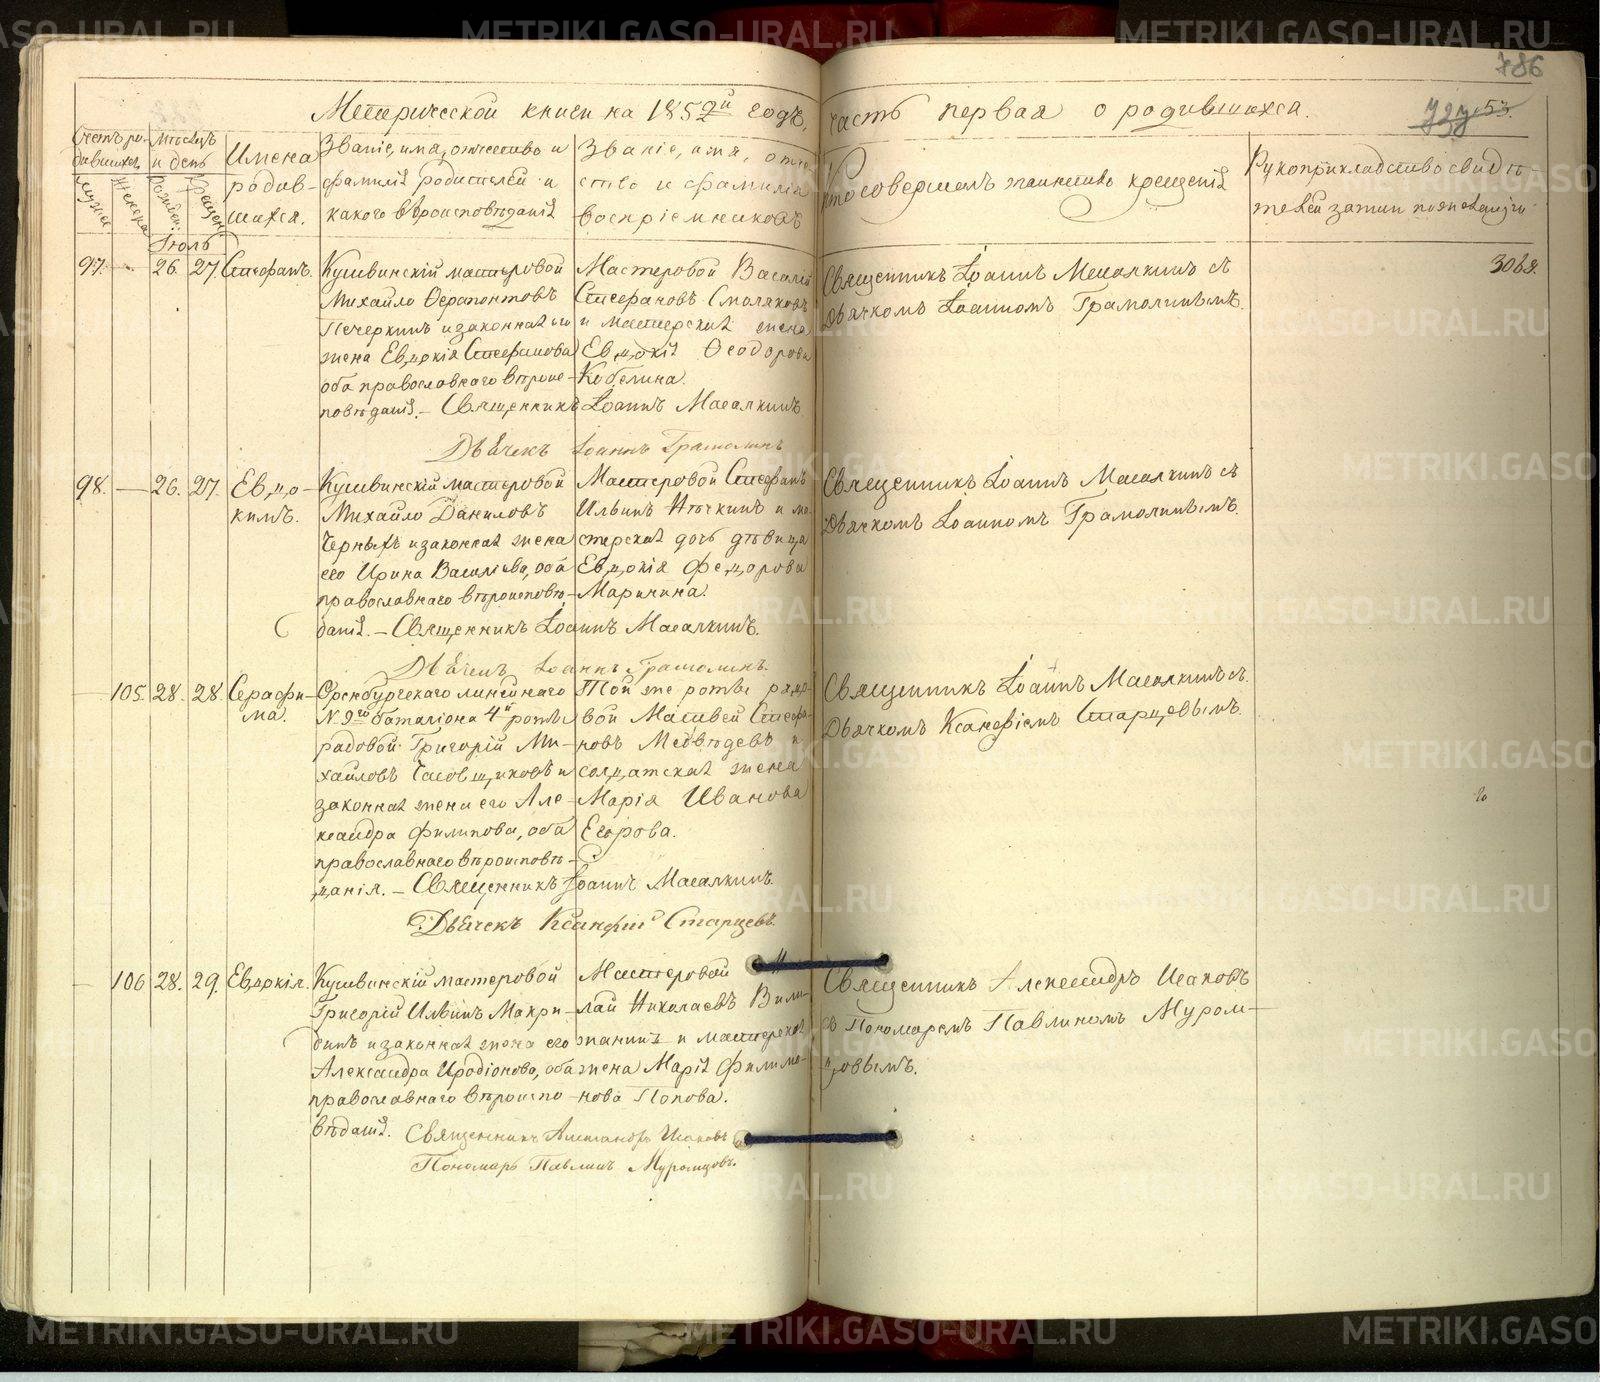 786
Метрической книги на 1852й годъ, часть первая о родившихся.
53.
Счетъ родившихся
Мужеска
Женска
Мѣсяцъ и день
Рожден.
Крещен.
Имена родившихся.
Званіе, имя, отчество и
фамилія родителей и
какого вѣроисповѣданія
Званіе, имя, отче-
ство и фамилія
воспріемниковъ
Кто совершалъ таинство крещенія
Рукоприкладство свидѣ-
телей записи по желанію
Іюль
97. 26. 27. Стефанъ.
Кушвинскій мастеровой
Михайло Ферапонтовъ
Печеркинъ и законная его
жена Евдокія Стефанова
оба православнаго вѣроис-
повѣданія. – Священникъ Іоаннъ Масалкинъ
Дьячекъ Іоаннъ Грамолинъ
Мастеровой Василій
Стефановъ Смоляковъ
и мастерская жена
Евдокія Ѳеодорова
Кобелина.
Священникъ Іоаннъ Масалкинъ съ
Дьячкомъ Іоанномъ Грамолинымъ.
98. 26. 27. Евдо-
кимъ.
Кушвинскій мастеровой
Михайло Даниловъ
Черныхъ и законная жена
его Ирина Васильева, оба
православнаго вѣроисповѣ-
данія. – Священникъ Іоаннъ Масалкинъ.
Дьячекъ Іоаннъ Грамолинъ.
Мастеровой Стефанъ
Ильинъ Нечкинъ и ма-
стерская дочь дѣвица
Евдокія Федорова
Маринина.
Священникъ Іоаннъ Масалкинъ съ
Дьячкомъ Іоанномъ Грамолинымъ.
105. 28. 28. Серафи-
ма.
Оренбургскаго линейнаго
N 9го баталіона 4й роты
рядовой Григорій Ми-
хайловъ Часовщиковъ и
законная жена его Але-
ксандра Филипова, оба
православнаго вѣроисповѣ-
данія. – Священникъ Іоаннъ Масалкинъ.
Дьячекъ Ксанфій Старцевъ.
Той же роты рядо-
вой Матвей Стефа-
новъ Медведевъ и
солдатская жена
Марія Иванова
Егорова.
Священникъ Іоаннъ Масалкинъ съ
Дьячкомъ Ксанфіемъ Старцевымъ.
106 28. 29. Евдокія.
Кушвинскій мастеровой
Григорій Ильинъ Макри-
динъ и законная жена его
Александра Иродіонова, оба
православнаго вѣроиспо-
вѣданія. Священникъ Александръ Исаковъ
Пономарь Павлинъ Муромцовъ.
Мастеровой Н
лай Николаевъ Вили-
жанинъ и мастерская
жена Марія Филимо-
нова Попова.
Священникъ Александръ Исаковъ
съ Пономаремъ Павлиномъ Муром-
цовымъ.
METRIKI.GASO-URAL.RU